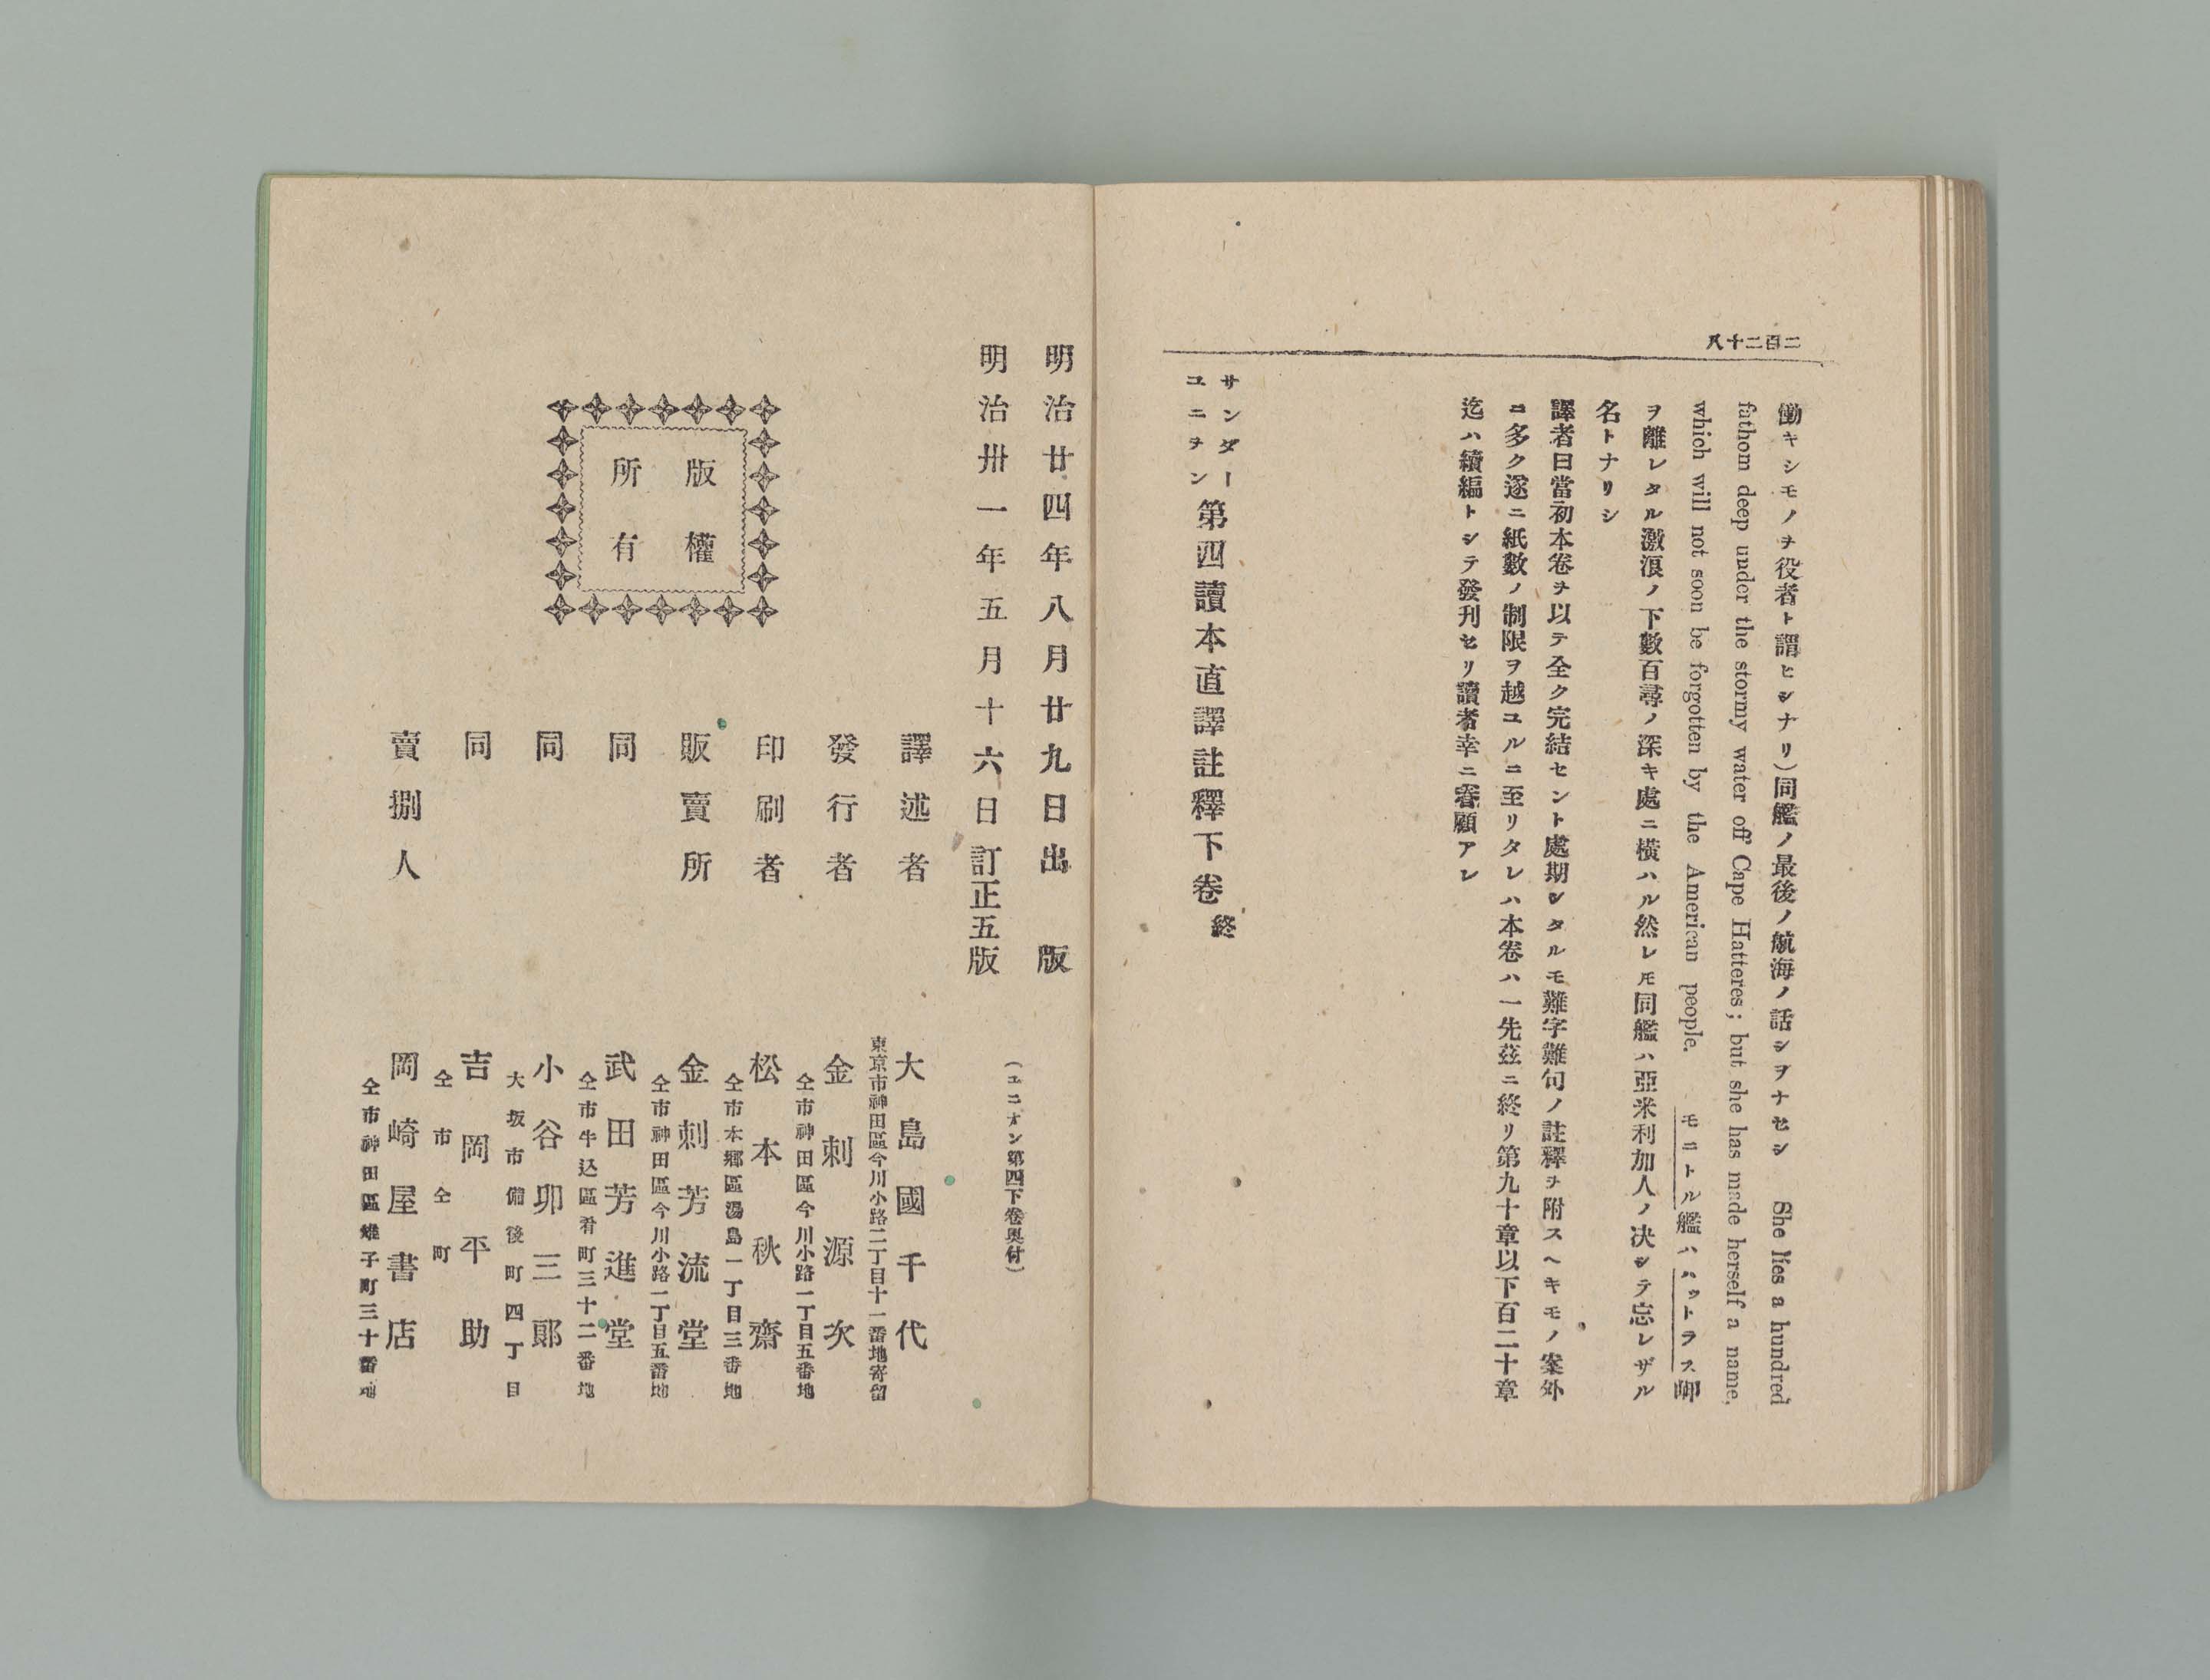 二百二十八
働キシモノヲ役者ト謂ヒシナリ)同艦ノ最後ノ航海ノ話シヲナセシ She lies a hundred
fathom deep under the stormy water off Cape Hatteres; but she has made herself a name,
which will not soon be forgotten by the American people. モニトル艦ハハットラス岬
ヲ離レタル激浪ノ下數百尋ノ深キ處ニ横ハル然レ𪜈同艦ハ亞米利加人ノ决シテ忘レザル
名トナリシ
譯者曰當初本卷ヲ以テ全ク完結セント處期シタルモ難字難句ノ註釋ヲ附スヘキモノ案外
ニ多ク遂ニ紙數ノ制限ヲ越ユルニ至リタレハ本卷ハ一先茲ニ終リ第九十章以下百二十章
迄ハ續編トシテ發刊セリ讀者幸ニ眷顧アレ
サンダー
ユニヲン
第四讀本直譯註釋下卷終
明治廿四年八月廿九日出版
明治卅一年五月十六日訂正五版
(ユニオン第四下卷奥付)
版權
所有
譯述者 大島國千代
東京市神田區今川小路二丁目十一番地寄留
發行者 金刺源次
仝市神田區今川小路一丁目五番地
印刷者 松本秋齋
仝市本郷區湯島一丁目三番地
販賣所 金刺芳流堂
仝市神田區今川小路一丁目五番地
同 武田芳進堂
仝市牛込區肴町三十二番地
同 小谷卯三郎
大坂市備後町四丁目
同 吉岡平助
仝市仝町
賣捌人 岡崎屋書店
仝市神田區雉子町三十番地